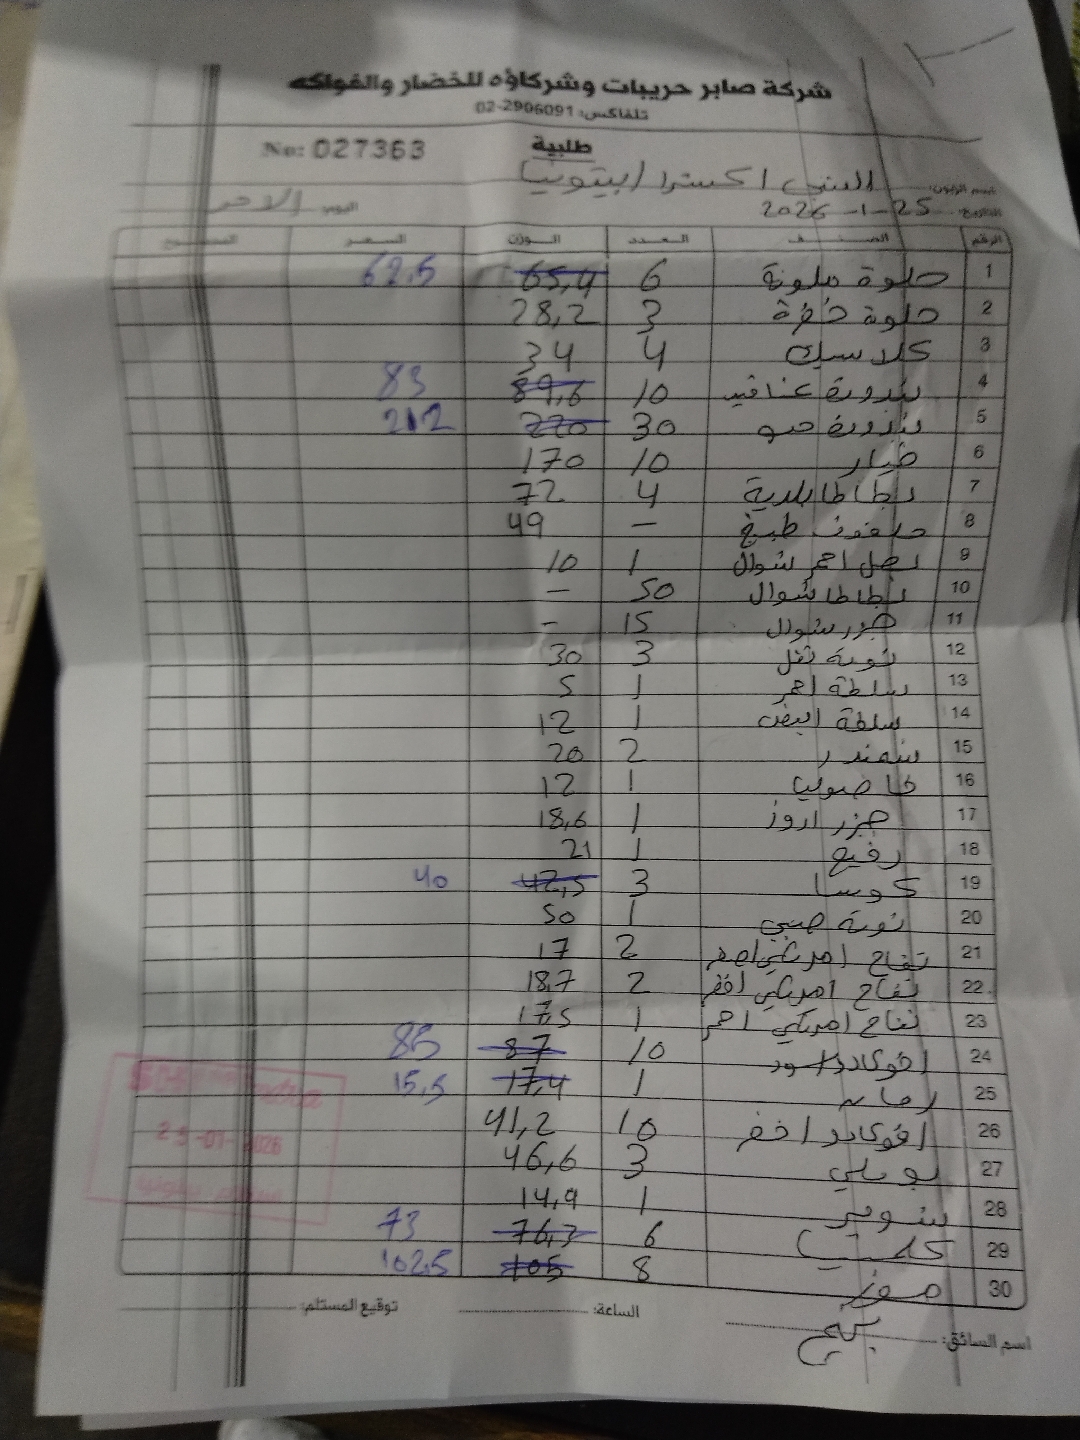 شركة صابر حريبات وشركاؤه للخضار والفواكه
تلفاكس: 02-2906091
طلبية
No: 027363
اسم الزبون: السني اكسترا / بيتونيا
التاريخ: 25-1-2026 اليوم: الاحد
الرقم الصنف العدد الوزن السعر المجموع
1 حلوة ملونة 6 65,4 62.5
2 حلوة خضرة 3 28,2
3 كلاسيك 4 34
4 بندورة عناقيد 10 89,6 83
5 بندورة حبو 30 220 212
6 خيار 10 170
7 بطاطا بلدية 4 72
8 ملفوف طبيخ - 49
9 بصل احمر شوال 1 10
10 بطاطا شوال 50 -
11 جزر شوال 15 -
12 ثومة تنل 3 30
13 سلطة احمر 1 5
14 سلطة ابيض 1 12
15 شمندر 2 20
16 فاصوليا 1 12
17 جزر اروز 1 18,6
18 رفيع 1 21
19 كوسا 3 42,5 40
20 ثومة صيني 1 50
21 تفاح امريكي اصفر 2 17
22 تفاح امريكي اخضر 2 18,7
23 تفاح امريكي احمر 1 17,5
24 افوكادو اسود 10 87 85
25 رمان 1 17,4 15,5
26 افوكادو اخضر 10 41,2
27 بوملي 3 46,6
28 1 14,9
29 6 76,3 73
30 موز 8 105 102.5
25-01-2026
اسم السائق: الساعة: توقيع المستلم: